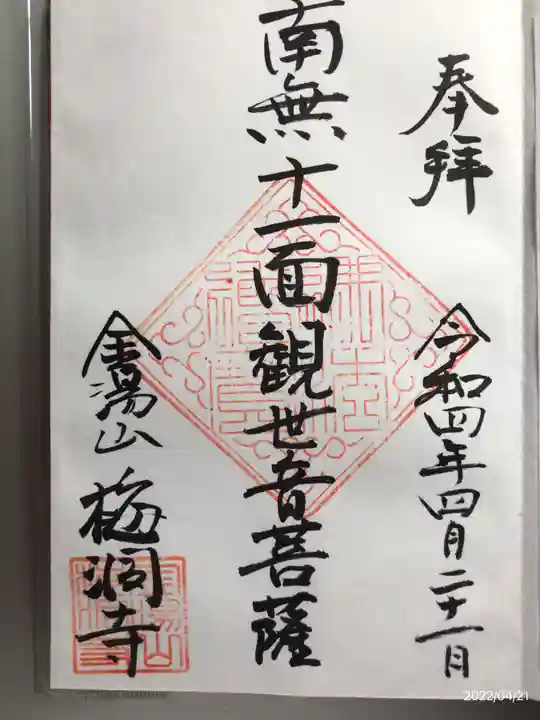 奉拝
令和四年四月二十一日
南無十一面観世音菩薩
金湯山
梅洞寺
2022/04/21